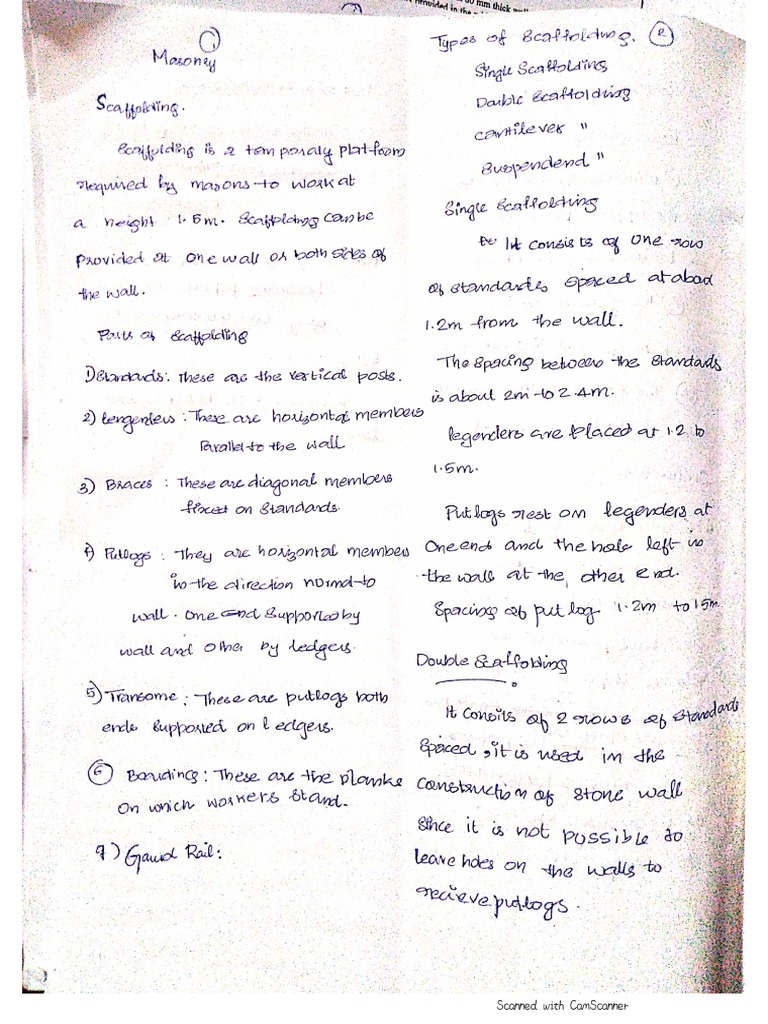 60 mm thick
provided in the
1
Masonry
Scaffolding.
Scaffolding is a temporaly platform
required by masons to work at
a height 1.5m. Scaffolding can be
provided at one wall or both sides of
the wall.
Parts of Scaffolding
1) Standards: These are the vertical posts.
2) Lengenders: These are horizontal members
Parallel to the wall
3) Braces: These are diagonal members
fixed on Standards.
4) Putlogs: They are horizontal members
in the direction normal to
wall. One end Supported by
wall and other by ledgers.
5) Transome: These are putlogs both
ends Supported on ledgers.
6 Boardings: These are the planks
On which workers stand.
7) Gaurd Rail:
Types of Scaffolding. 2
Single Scaffolding
Double Scaffolding
Cantilever "
Suspendend "
Single Scaffolding
It consists of one row
of standards spaced at about
1.2m from the wall.
The Spacing between the standards
is about 2m to 2.4m.
legenders are placed at 1.2 to
1.5m.
Putlogs rest on legenders at
One end and the hole left in
the wall at the other end.
Spacing of put log 1.2m to 15m
Double Scaffolding
It consits of 2 rows of Standards
Spaced, it is used in the
Construction of stone wall
Since it is not possible to
leave holes on the walls to
recieve putlogs.
Scanned with CamScanner